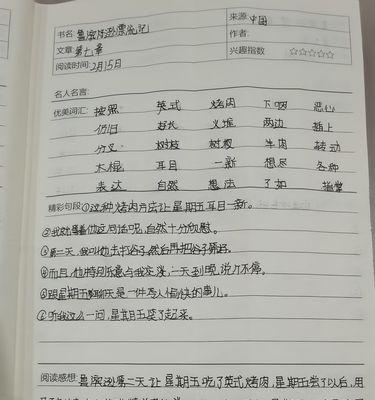 书名: 鲁滨孙漂流记
来源: 中国
文章: 第七章
作者:
阅读时间: 2月15日
兴趣指数 ☆☆☆☆☆
名人名言:
优美词汇: 按照 英式 烤肉 下咽 恶心
仍旧 火堆 两边 插上
分叉 树枝 牛肉 转动
木棍 耳目 一新 想尽 各种
表达 自然 想法 了如 指掌
精彩句段 ①这种烤肉方法让星期五耳目一新。
他这句话呢,自然十分欣慰。
③第二天,我叫他去打谷子,然后再把谷子筛好。
④而且,他特别乐意与我交流,一天到晚,说个不停。
⑤跟星期五聊天是一件令人愉快的事儿。
⑥听我这么一问,星期五笑了起来。
阅读感想: 鲁滨逊第二天让星期五吃了英式烤肉,星期五尝了以后,用